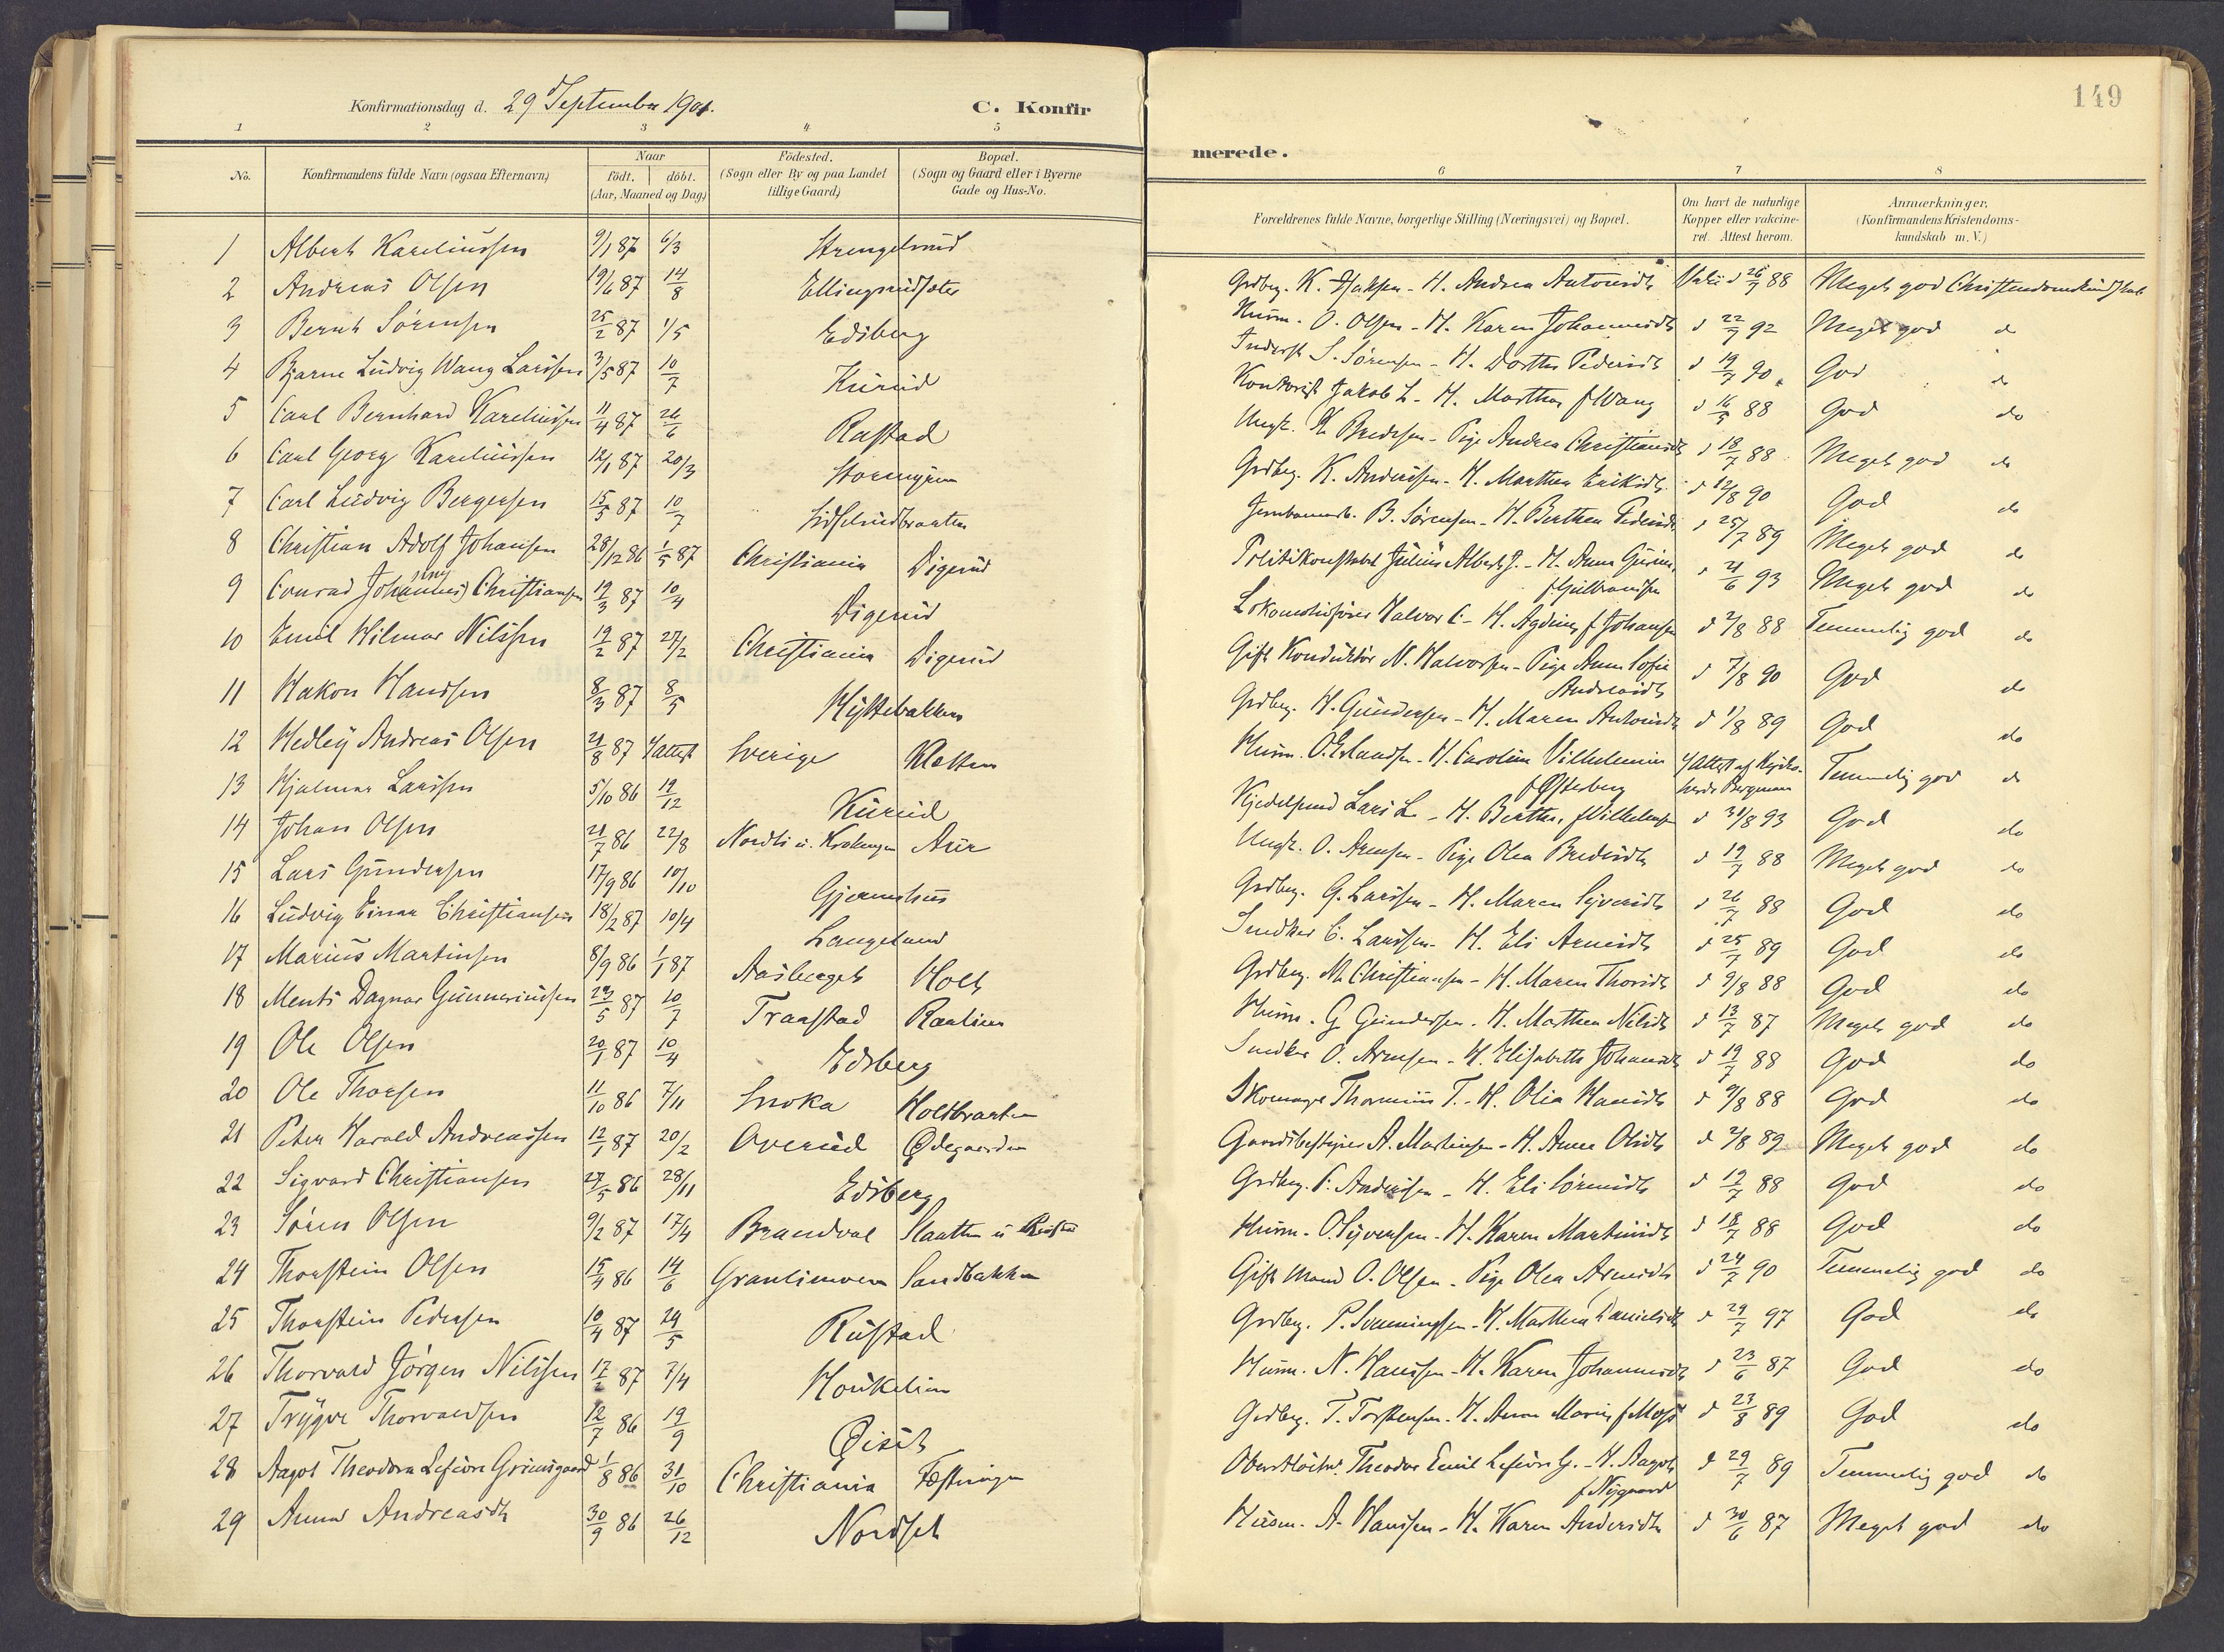 149
Konfirmationsdag d. 29 September 1901.
C. Konfirmerede.
1 2 3 4 5 6 7 8
No. Konfirmandens fulde Navn (ogsaa Efternavn) Naar födt. döbt. (Aar, Maaned og Dag) Födested. (Sogn eller By og paa Landet tillige Gaard) Bopæl. (Sogn og Gaard eller i Byerne Gade og Hus-No. Forældrenes fulde Navne, borgerlige Stilling (Næringsvei) og Bopæl. Om havt de naturlige Kopper eller vakcineret. Attest herom. Anmærkninger. (Konfirmandens Kristendomskundskab m. V.)
1 Albert Kareliussen 9/1 87 6/3 Strengelsrud Grdbrg. K. Isaksen - H. Andrea Antonsdt 26/7 88 Meget god Christendomskundskab
2 Andreas Olsen 19/6 87 14/8 Ellingsrudsæter Husm. O. Olsen - H. Karen Johannesdt d 22/7 92 Meget god do
3 Bernt Sörensen 25/2 87 1/5 Edsberg Inderst S. Sörensen - H. Dorthe Pedersdt d 19/7 90 God do
4 Bjarne Ludvig Wang Larssen 3/5 87 10/7 Kurud Kontorist Jakob L - H. Marthea f Wang d 16/5 88 God do
5 Carl Bernhard Kareliussen 11/4 87 26/6 Rastad Ungk. K Bredesen - Pige Andrea Christiansdt d 18/7 88 Meget god do
6 Carl Georg Kareliussen 12/1 87 20/3 Grdbrg. K. Anderssen - H. Marthea Eriksdt. d 12/8 90 God do
7 Carl Ludvig Bergersen 15/5 87 10/7 Sidselrudbraaten Jernbanearb. B. Sörensen - H. Berthea Pedersdt d 25/7 89 Meget god do
8 Christian Adolf Johansen 28/12 86 1/5 87 Christiania Digerud Politikonstabel Julius Albert J. - H. Anna f Gulbrandsen d 21/6 93 Meget god do
9 Conrad Johannes Christiansen 19/3 87 10/4 Digerud Lokomotivförer Halvor C - H. Agdine f Johansen d 2/8 88 Temmelig god do
10 Emil Hilmar Nilssen 19/2 87 27/2 Christiania Digerud Gift Konduktör N. Halvorsen - Pige Anna Sofie Andreasdt d 7/8 90 God do
11 Hakon Hanssen 8/3 87 8/5 Hyttebakken Grdbrg. H. Gundersen - H. Maren Antonsdt d 1/8 89 God do
12 Hedley Andreas Olsen 21/8 87 attest Sverige Kletten Husm. O. Erlandsen - H. Caroline Vilhelmine f Østerberg Attest af Kyrkoherde Bergman Temmelig god do
13 Hjalmar Larssen 5/10 86 19/12 Kurud Kjedelsmed Lars L - H. Berthe, f Vilhelmsen d 31/8 93 God do
14 Johan Olsen 21/7 86 22/8 Nordli u. Aur Ungk. O. Arnesen - Pige Olea Bredesdt d 19/7 88 Meget god do
15 Lars Gundersen 17/9 86 10/10 Gjermshus Grdbrg. G. Larssen - H. Maren Syversdt d 26/7 88 God do
16 Ludvig Einar Christiansen 18/2 87 10/4 Langelund Snedker C. Larssen - H. Eli Arnesdt d 25/7 89 God do
17 Marius Martinsen 8/9 86 1/1 87 Aasberget Holt Grdbrg. M. Christiansen - H. Maren Thorsdt d 9/8 88 God do
18 Mentz Dagnar Gunneriussen 29/5 87 10/7 Traastad Raalien Husm. G. Gundersen - H. Marthea Nilsdt d 13/7 87 Meget god do
19 Ole Olsen 20/1 87 10/4 Edsberg Snedker O. Arnesen - H. Elisabeth Johansdt d 19/7 88 God do
20 Ole Thorsen 11/10 86 7/11 Snoka Holtbraaten Skomager Thorinius T. - H. Olia Hansdt d 9/8 88 God do
21 Peter Harald Andreassen 12/1 87 20/2 Overud Ødegaarden Gaardsbestyrer A. Martinsen - H. Anne Olsdt d 2/8 89 Meget god do
22 Sigvard Christiansen 27/5 86 28/11 Edsberg Grdbrg. C. Anderssen - H. Eli Sörensdt d 19/7 88 God do
23 Sören Olsen 9/2 87 17/4 Brandval Slaatten u Husm. O. Syversen - H. Karen Martinsdt d 18/7 88 God do
24 Thorstein Olsen 15/4 86 14/6 Granlimoen Sandbakken Gift Mand O. Olsen - Pige Olea Arnesdt d 24/7 90 Temmelig god do
25 Thorstein Pedersen 10/4 87 29/5 Rustad Grdbrg. P. Svenningsen - H. Marthea Danielsdt d 29/7 97 God do
26 Thorvald Jörgen Nilssen 17/2 87 7/4 Haukelien Husm. N. Hanssen - H. Karen Johannesdt d 23/6 87 God do
27 Trygve Thorvaldsen 12/7 86 19/9 Øisit Grdbrg. T. Torstensen - H. Anna Marie f Moss d 23/8 89 God do
28 Aagot Theodora Lefèvre Grimsgaard 1/8 86 31/10 Christiania Fæstningen Oberstlöitn. Theodor Emil Lefèvre G. - H. Aagot f Nygaard d 29/7 89 Temmelig god do
29 Anna Andreasdt 30/9 86 26/12 Nordset Husm. A. Hanssen - H. Karen Andersdt d 30/6 87 Meget god do